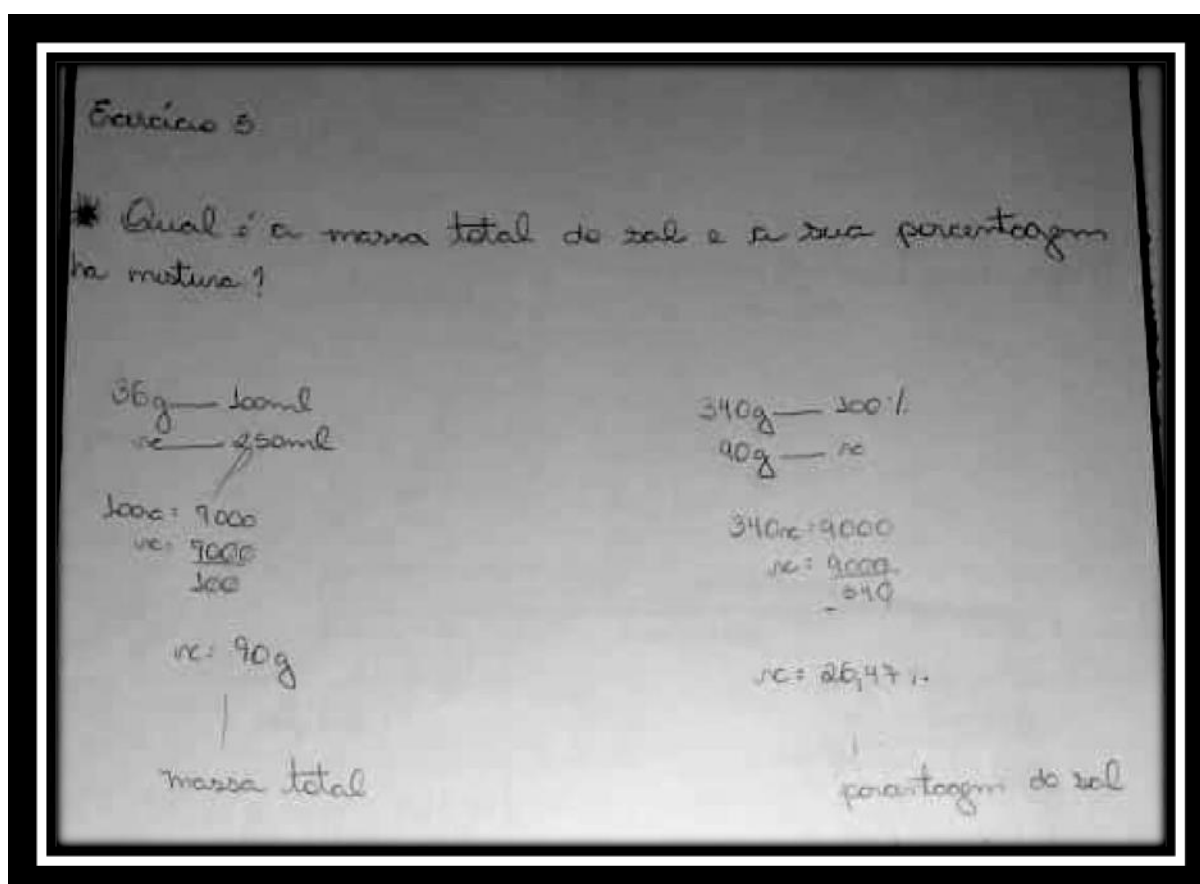 Exercício 5
* Qual é a massa total do sal e a sua porcentagem
na mistura?
36g — 100ml
x — 250ml
100x = 9000
x = 9000
100
x = 90g
massa total
340g — 100%
90g — x
340x = 9000
x = 9000
340
x = 26,47%
porcentagem do sal